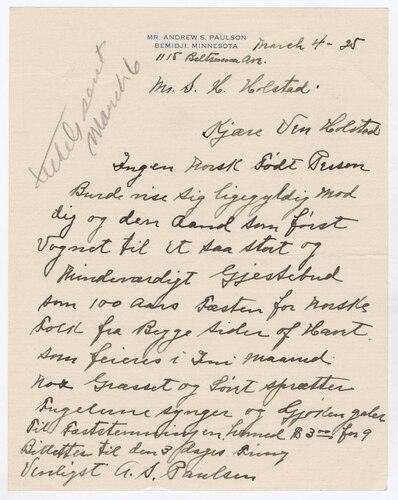 MR. ANDREW S. PAULSON
BEMIDJI, MINNESOTA
March 4 - 25
1115 Beltrami Ave.
Mr. S. H. Holstad.
Tickets sent
March 6
Kjære Ven Holstad
Ingen Norsk Födt Person
Burde vise sig ligegyldig mod
dig og den aand som först
Vognet til et saa stort og
Mindeværdigt Gjestebud
som 100 Aars Festen for Norske
Folk fra Begge Sider of Havet
som feires i Juni Maaned
naar Græsset og Lövet sprætter
Fugelune synger og Gjöken galer
til Feststemningen, hermed $ 3.00 for 9
Billetter til den 3 dages
Venligst A. S. Paulson